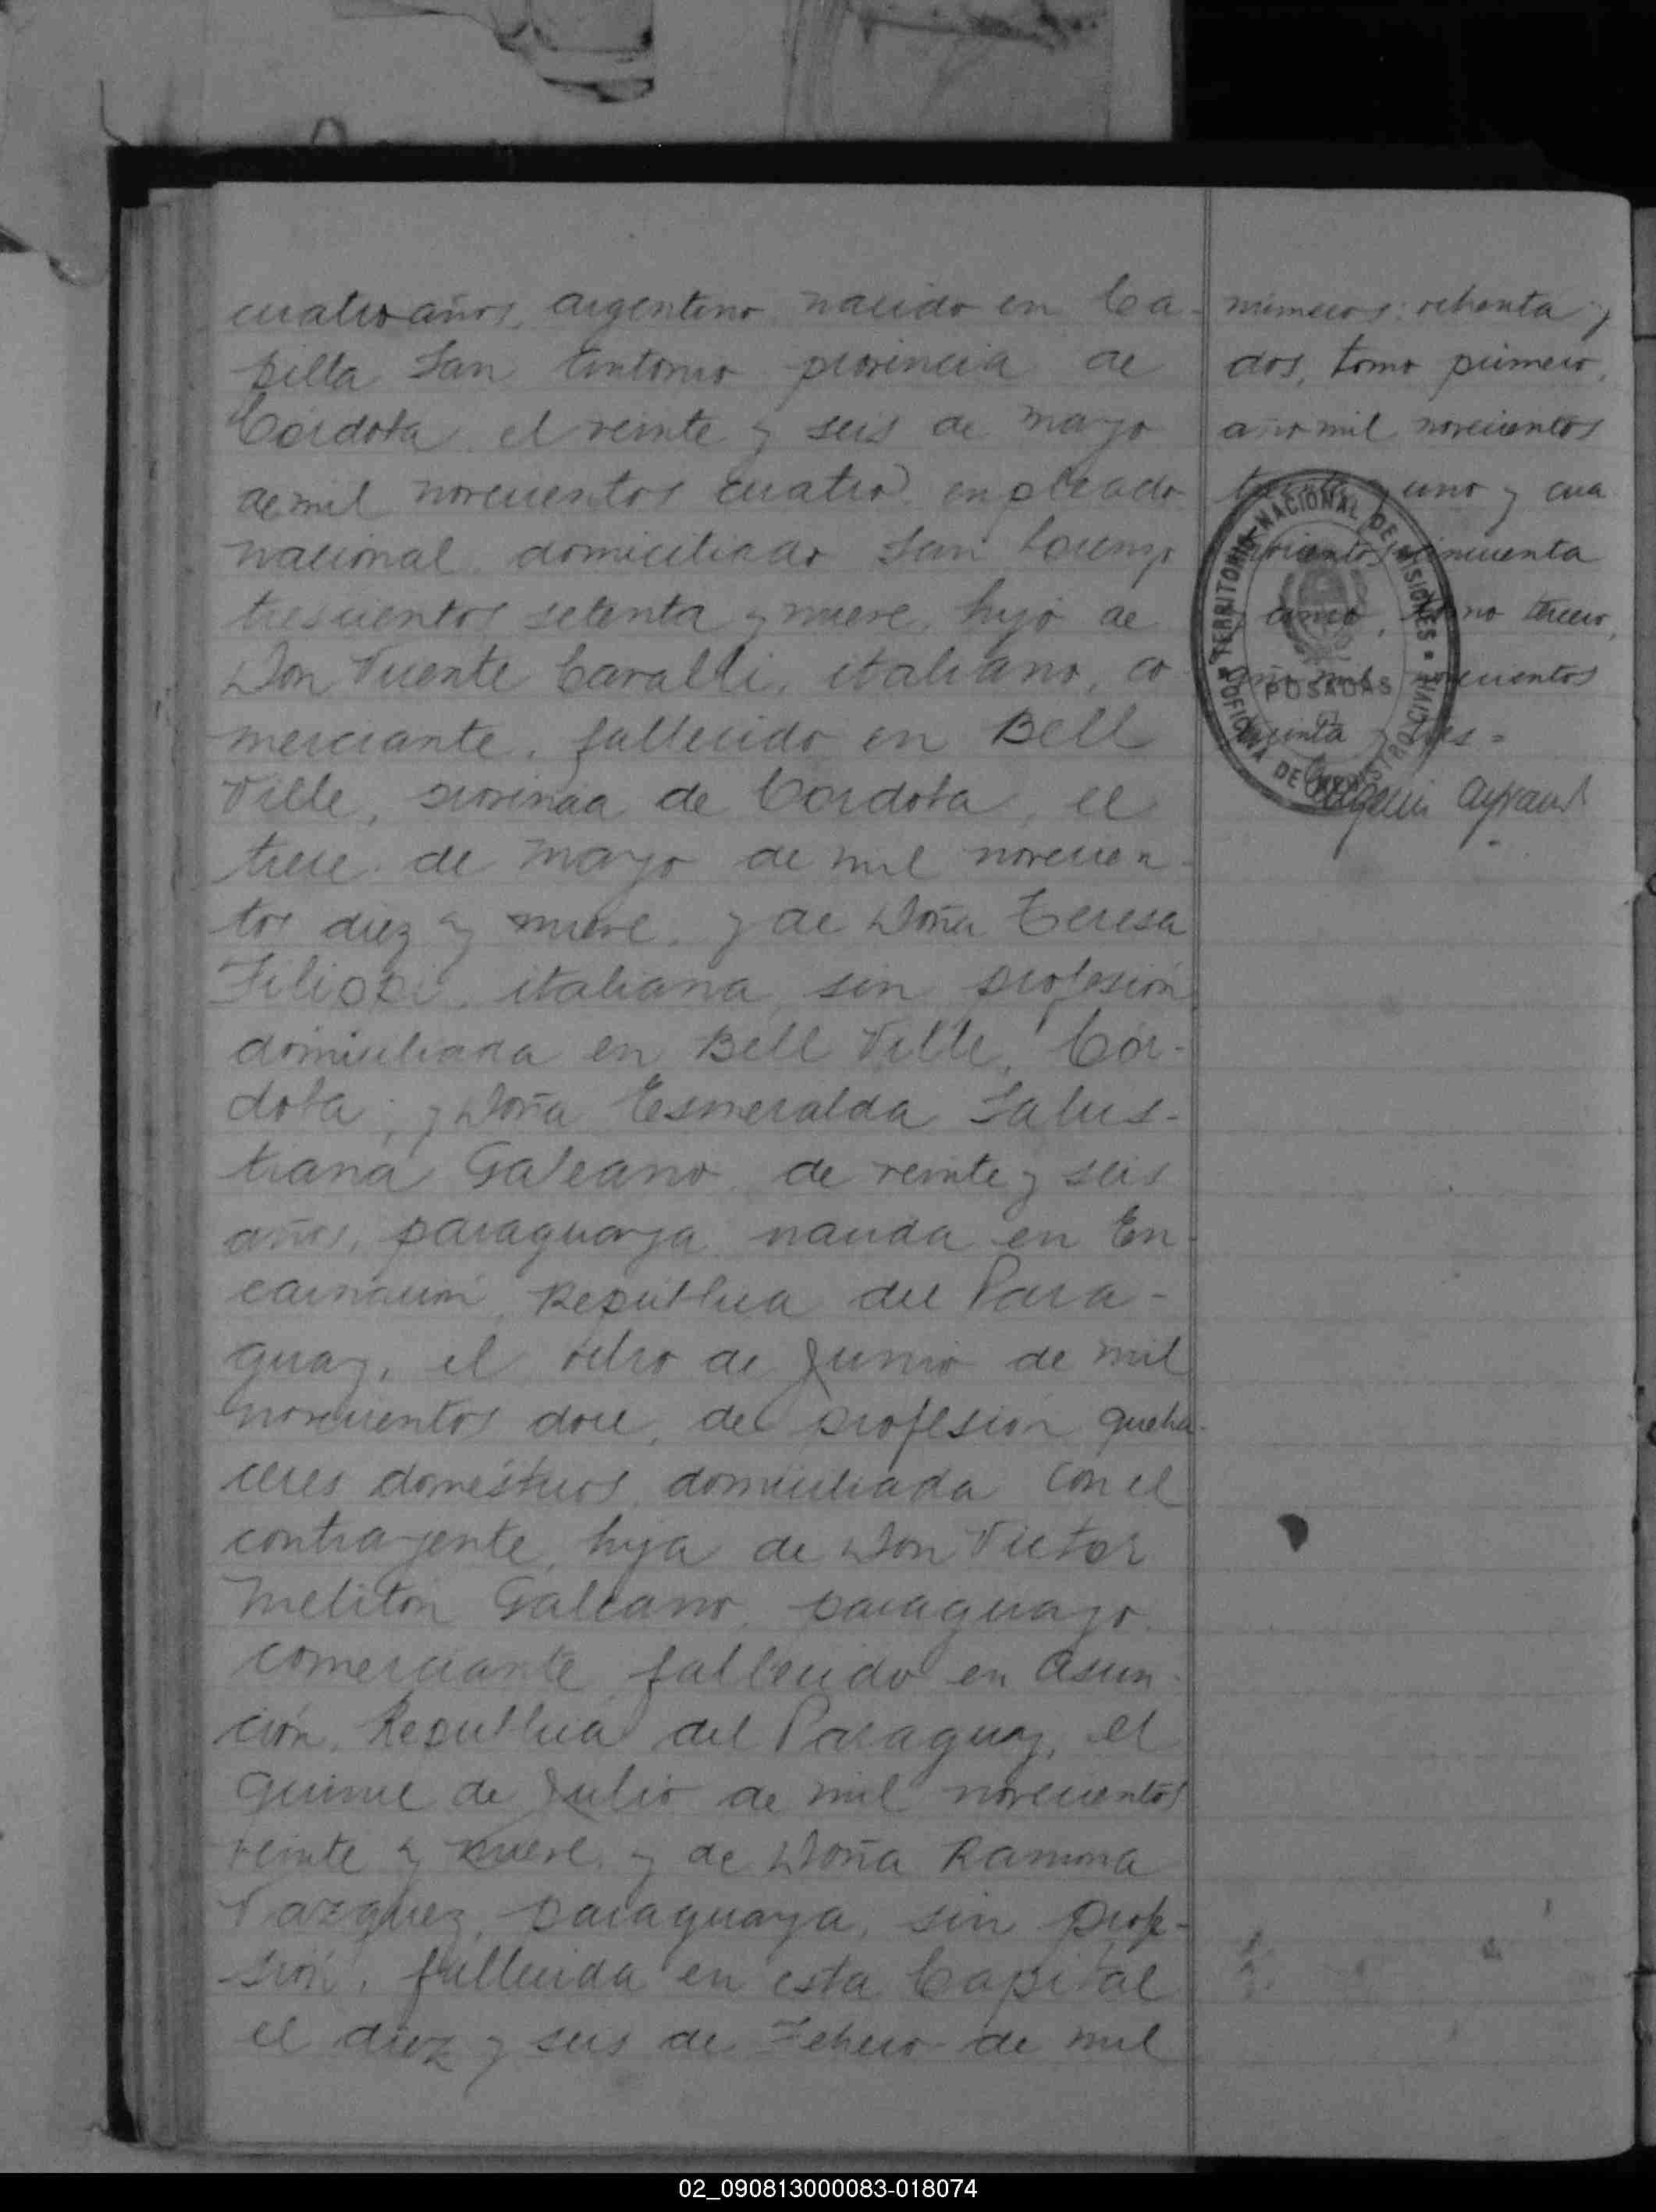 cuatro años, argentino nacido en Ca-
pilla San Antonio provincia de
Córdoba, el veinte y seis de mayo
de mil novecientos cuatro, empleado
nacional, domiciliado San Lorenzo
trescientos setenta y nueve, hijo de
Don Vicente Cavalli, italiano, co-
merciante, fallecido en Bell
Ville, provincia de Cordoba, el
trece de mayo de mil novecien-
tos diez y nueve, y de Doña Teresa
Filippi, italiana, sin profesión
domiciliada en Bell Ville, Cór-
doba; y Doña Esmeralda Salus-
tiana Galeano, de veinte y seis
años, paraguaya nacida en En-
carnación, República del Para-
guay, el ocho de Junio de mil
novecientos doce, de profesión queha-
ceres domésticos, domiciliada con el
contrayente, hija de Don Victor
Melitón Galeano, paraguayo,
comerciante, fallecido en Asun-
ción, República del Paraguay, el
quince de Julio de mil novecientos
veinte y nueve, y de Doña Ramona
Vazquez, paraguaya, sin profe-
sión, fallecida en esta Capital
el diez y seis de Febrero de mil
números: ochenta y
dos, tomo primero,
año mil novecientos
treinta y uno y cua
trocientos cincuenta
y cinco, tomo tercero,
año mil novecientos
treinta y tres =
TERRITORIO NACIONAL DE MISIONES
OFICINA DE REGISTRO CIVIL
POSADAS
02_090813000083-018074